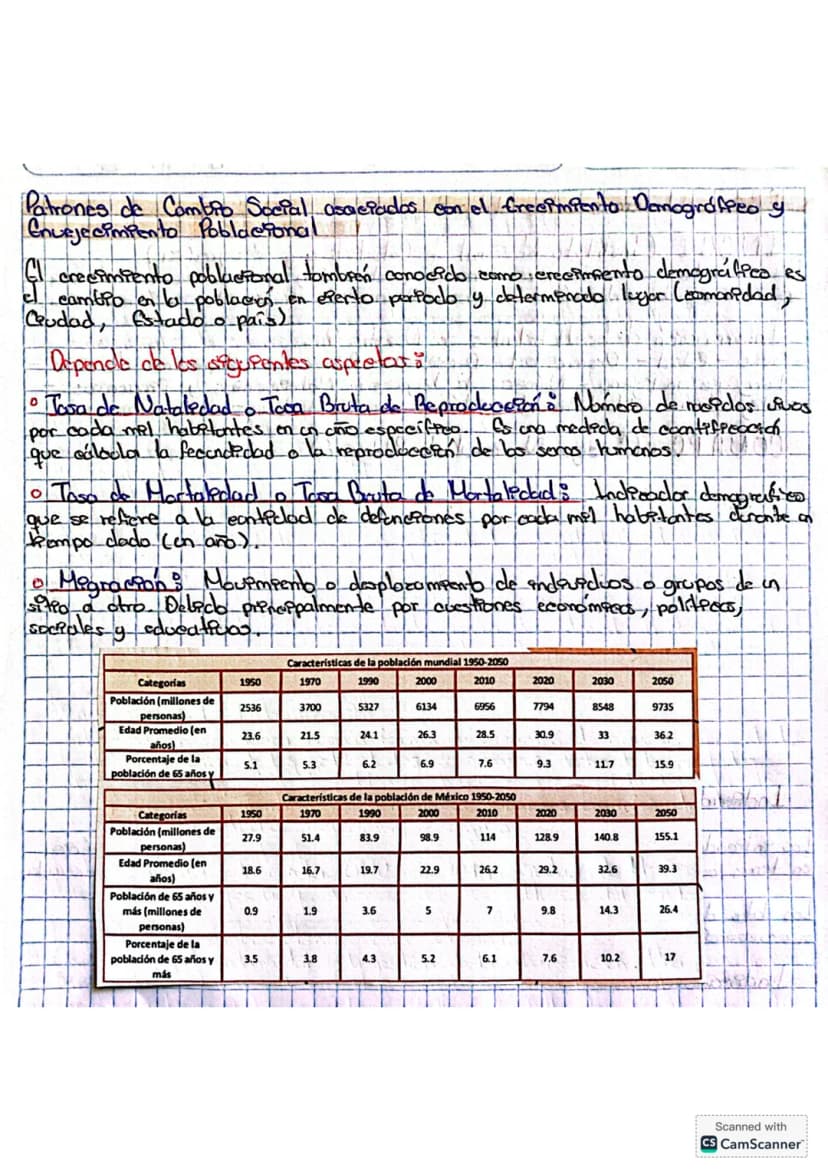 Patrones de Cambio Social asociados con el Crecimiento Demográfico y
Envejecimiento Poblacional
El crecimiento poblacional también conocido como crecimiento demográfico es
el cambio en la población en cierto periodo y determinado lugar (comunidad,
Ciudad, Estado o país)
Depende de los siguientes aspectos:
Tasa de Natalidad o Tasa Bruta de Reproducción: Número de nacidos vivos
por cada mil habitantes en un año específico. Es una medida de cuantificación
que calcula la fecundidad o la reproducción de los seres humanos.
Tasa de Mortalidad o Tasa Bruta de Mortalidad: Indicador demográfico
que se refiere a la cantidad de defunciones por cada mil habitantes durante un
tiempo dado (en año).
Migración: Movimiento o desplazamiento de individuos o grupos de un
sitio a otro. Debido principalmente por cuestiones económicas, políticas,
sociales y educativas.
Características de la población mundial 1950-2050
Categorías 1950 1970 1990 2000 2010 2020 2030 2050
Población (millones de
personas) 2536 3700 5327 6134 6956 7794 8548 9735
Edad Promedio (en
años) 23.6 21.5 24.1 26.3 28.5 30.9 33 36.2
Porcentaje de la
población de 65 años y 5.1 5.3 6.2 6.9 7.6 9.3 11.7 15.9
Características de la población de México 1950-2050
Categorías 1950 1970 1990 2000 2010 2020 2030 2050
Población (millones de
personas) 27.9 51.4 83.9 98.9 114 128.9 140.8 155.1
Edad Promedio (en
años) 18.6 16.7 19.7 22.9 26.2 29.2 32.6 39.3
Población de 65 años y
más (millones de 0.9 1.9 3.6 5 7 9.8 14.3 26.4
personas)
Porcentaje de la
población de 65 años y 3.5 3.8 4.3 5.2 6.1 7.6 10.2 17
más
Scanned with
CS CamScanner